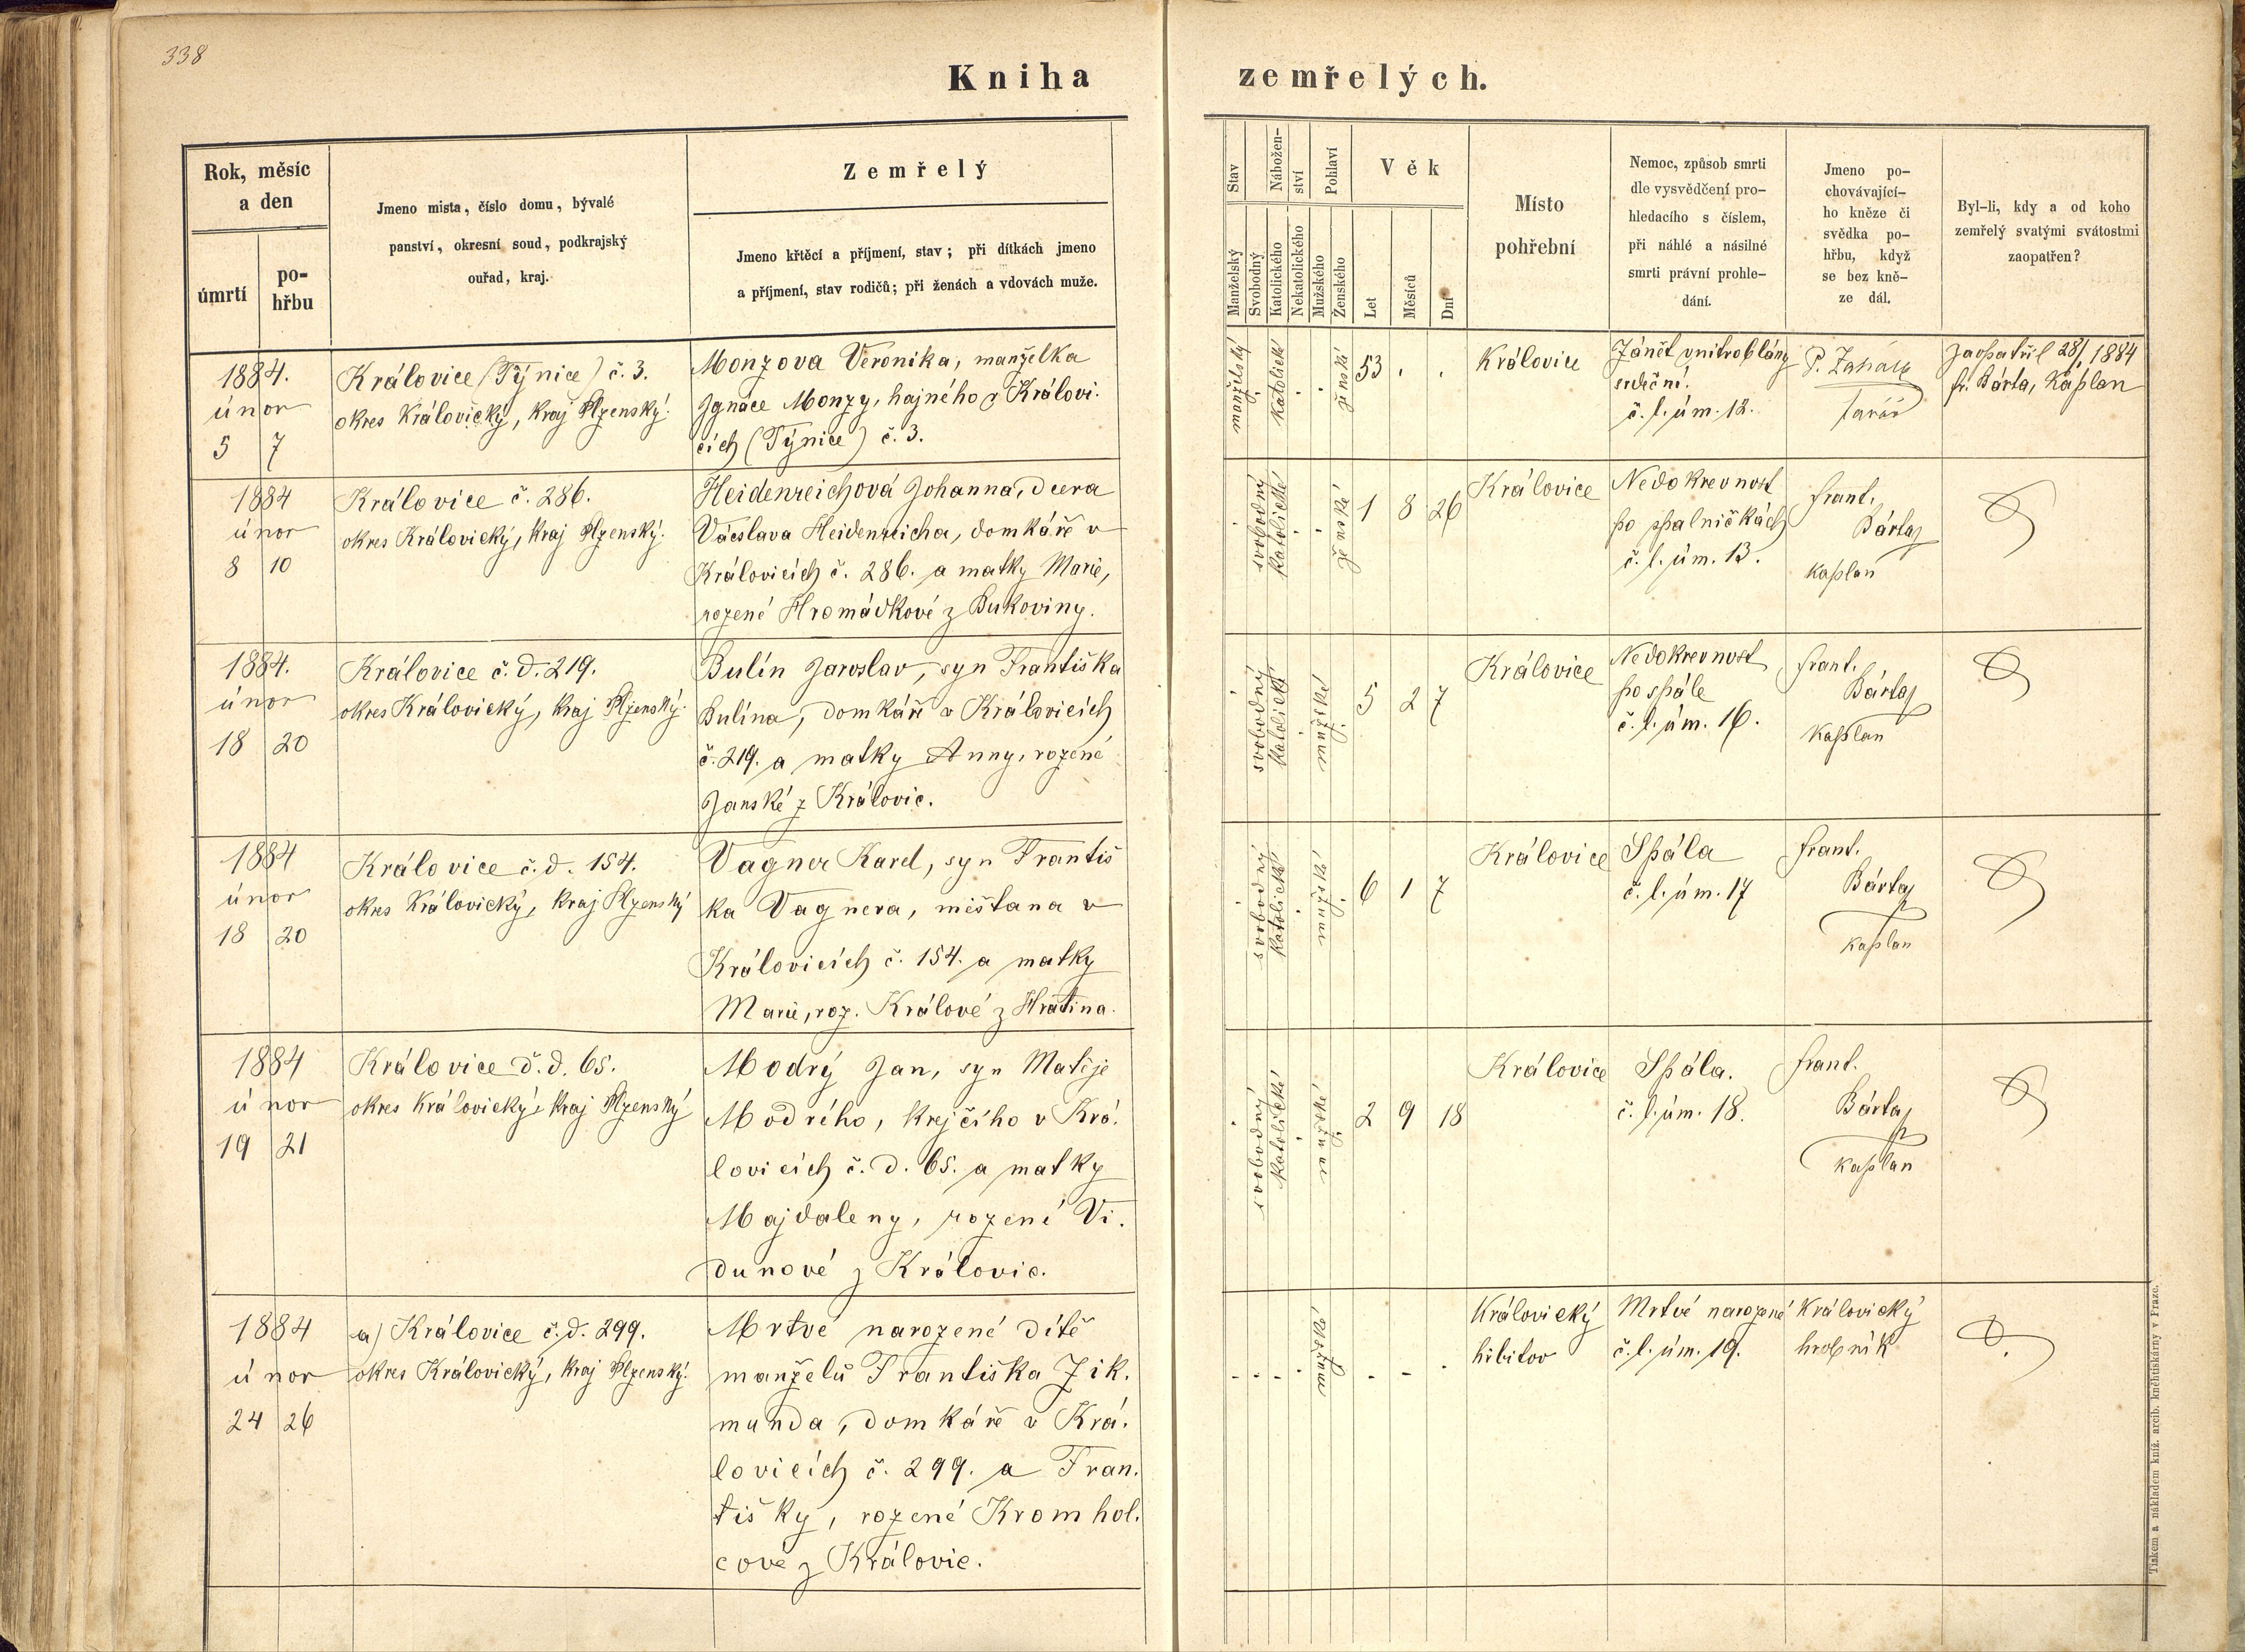 338
Kniha zemřelých.
Rok, měsíc
a den
úmrtí
po-
hřbu
Jmeno mista, číslo domu, bývalé
panství, okresní soud, podkrajský
ouřad, kraj.
Zemřelý
Jmeno křtěcí a příjmení, stav; při dítkách jmeno
a příjmení, stav rodičů; při ženách a vdovách muže.
Stav
Manželský
Svobodný
Nábožen-
ství
Katolického
Nekatolického
Pohlaví
Mužského
Ženského
Věk
Let
Měsíců
Dní
Místo
pohřební
Nemoc, způsob smrti
dle vysvědčení pro-
hledacího s číslem,
při náhlé a násilné
smrti právní prohle-
dání.
Jmeno po-
chovávající-
ho kněze či
svědka po-
hřbu, když
se bez kně-
ze dál.
Byl-li, kdy a od koho
zemřelý svatými svátostmi
zaopatřen?
1884.
únor
5 7
Královice (Týnice) č. 3.
okres Královický, kraj Plzenský.
Monzova Veronika, manželka
Ignáce Monzy, hajného z Královi-
cích (Týnice) č. 3.
manželský
katolické
ženské
53 . .
Královice
Zánět vnitroblány
srdeční.
č. l. úm. 12.
P.
farář
Zaopatřil 28/1 1884
fr. Bárta, Kaplan
1884
únor
8 10
Královice č. 286.
okres Královický, kraj Plzenský.
Heidenreichová Johanna, dcera
Václava Heidenreicha, domkáře v
Královicích č. 286. a matky Marie,
rozené Hromádkové z Bukoviny.
svobodný
katolické
ženské
1 8 26
Královice
Nedokrevnost
po spalničkách
č. l. úm. 13.
frant.
Bárta
kaplan
1884.
únor
18 20
Královice č. d. 219.
okres Královický, kraj Plzenský.
Bulín Jaroslav, syn Františka
Bulína, domkáře v Královicích
č. 219. a matky Anny, rozené
Janské z Královic.
svobodný
katolické
mužské
5 2 7
Královice
Nedokrevnost
po spále
č. l. úm. 16.
frant.
Bárta
kaplan
1884
únor
18 20
Královice č. d. 154.
okres Královický, kraj Plzenský
Vagner Karel, syn Františ
ka Vagnera, měšťana v
Královicích č. 154. a matky
Marie, roz. Králové z Hratina.
svobodný
katolické
mužské
6 1 7
Královice
Spála
č. l. úm. 17
frant.
Bárta
kaplan
1884
únor
19 21
Královice č. d. 65.
okres Královický, kraj Plzenský
Modrý Jan, syn Matěje
Modrého, krejčího v Krá-
lovicích č. d. 65. a matky
Majdaleny, rozené Vi-
dunové z Královic.
svobodný
katolické
mužské
2 9 18
Královice
Spála.
č. l. úm. 18.
frant.
Bárta
kaplan
1884
únor
24 26
a) Královice č. d. 299.
okres Královický, kraj Plzenský.
Mrtvé narozené dítě
manželů Františka Zik-
munda, domkáře v Krá-
lovicích č. 299. a Fran-
tišky, rozené Kromhol-
cové z Královic.
mužské
- - .
Královický
hřbitov
Mrtvé narozené
č. l. úm. 19.
Královický
hrobník
Tiskem a nákladem kníž. arcib. kněhtiskárny v Praze.